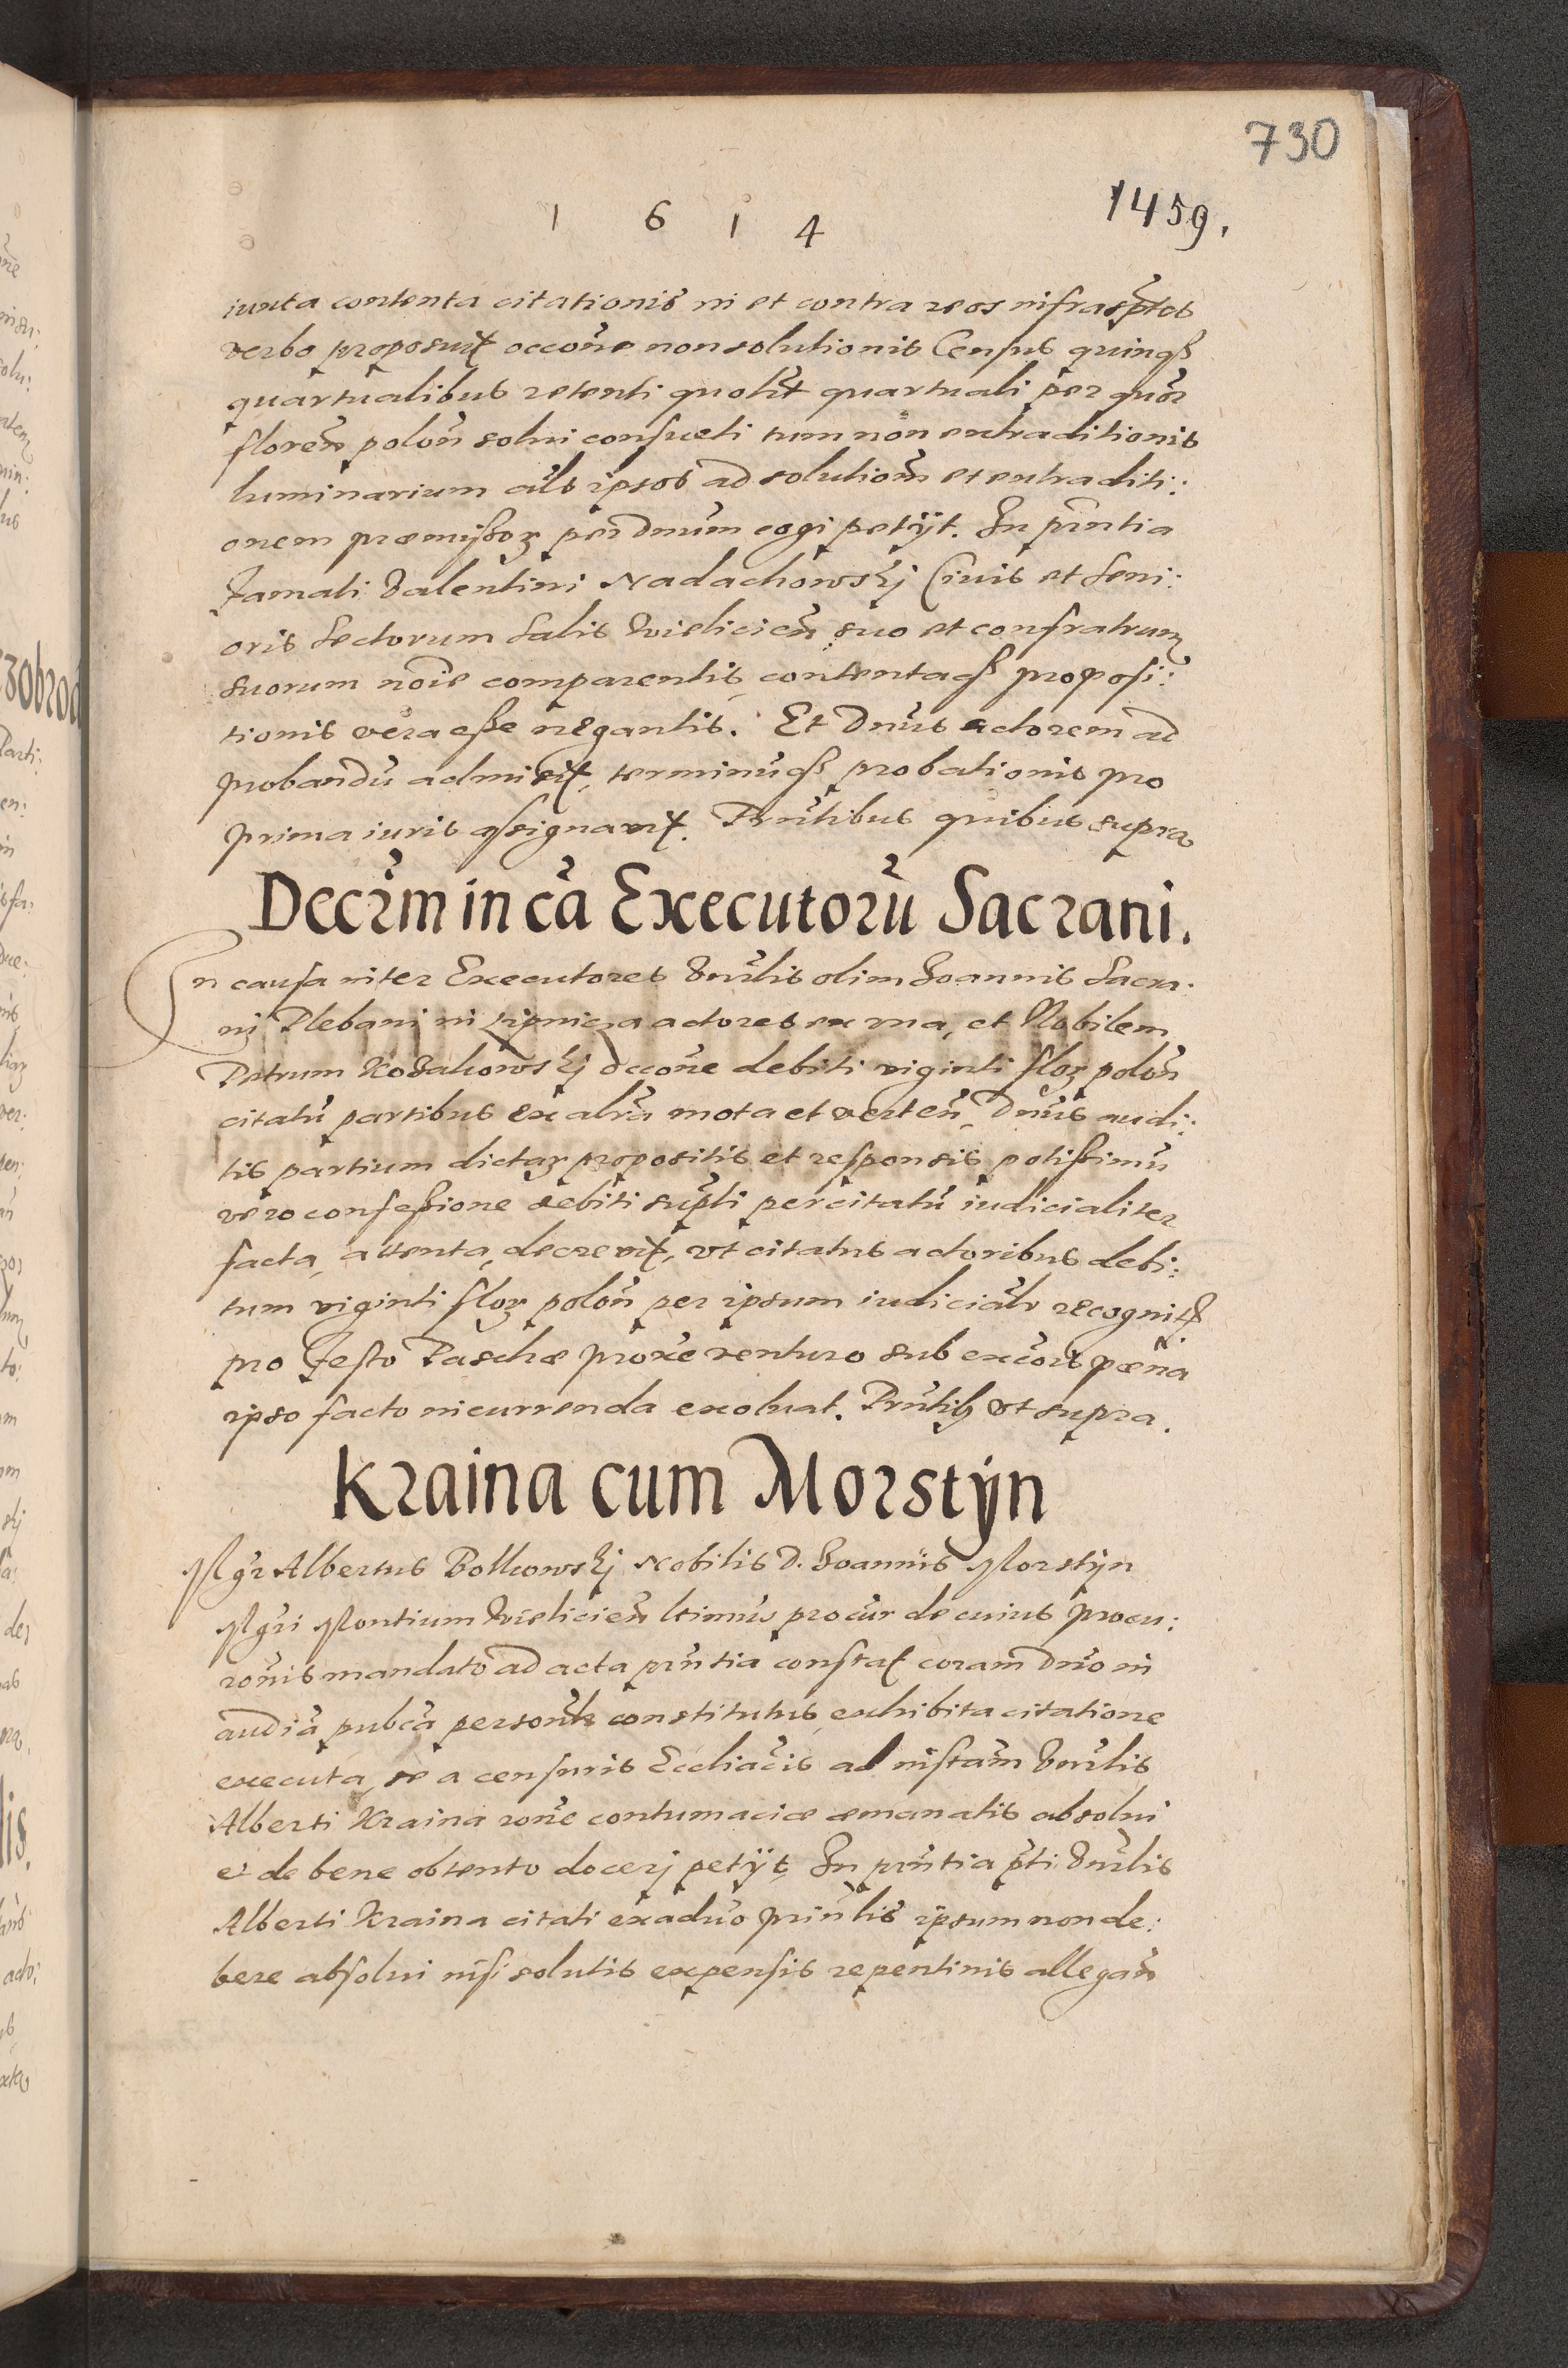 730
1 6 1 4
1459.
iuxta contenta citationis in et contra reos infrascptos
verbo proposuit occone non solutionis Census quinqȝ
quartualibus retenti quolꝫt quartuali per quor
floren polon solui consueti tum non extraditionis
luminarium als ipsos ad solutiom et extraditi:
onem præmissoꝝ per Dnum cogi petÿt. In pntia
Famati Valentini Nadachowskj Ciuis et Seni:
oris Sectorum Salis Vielicień suo et confratrum
suorum noie comparentis, contentaqȝ proposi:
tionis vera esse negantis. Et Dnus actorem ad
probandū admisit, terminūqȝ probationis pro
prima iuris assignauit. Pntibus quibus supra
Decrm in cā Executorū Sacrani.
In causa inter Executores Vnrlis olim Joannis Sacra.
nj Plebani in Lipnica actores ex vna, et Nobilem
Petrum Kosakowskj occone debiti viginti floꝝ polon
citatū partibus ex altra mota et verten, Dnus audi:
tis partium dictaꝝ propositis et responsis potissimū
vero confessione debiti suprti per citatū iudicialiter
facta, attenta, decreuit, vt citatus actoribus debi:
tum viginti floꝝ polon per ipsum iudicialr recognit
pro Festo Paschæ proxe venturo sub excois pæna
ipso facto incurrenda exoluat. Pntibȝ vt supra.
Kraina cum Morstÿn
Mgr Albertus Bolkowskj Nobilis D. Joannis Morstÿn
Mgri Montium Vielicien ltimus procur de cuius procu:
ronis mandato ad acta pntia constat coram Dno in
audia pubca personlr constitutus, exhibita citatione
executa, se a censuris Eccliacis ad instam Vnrlis
Alberti Kraina rone contumaciæ emanatis absolui
et de bene obtento docerj petÿt, In pntia pti Vnrlis
Alberti Kraina citati ex aduo pnntis ipsum non de:
bere absolui nisi solutis expensis repentinis allegan